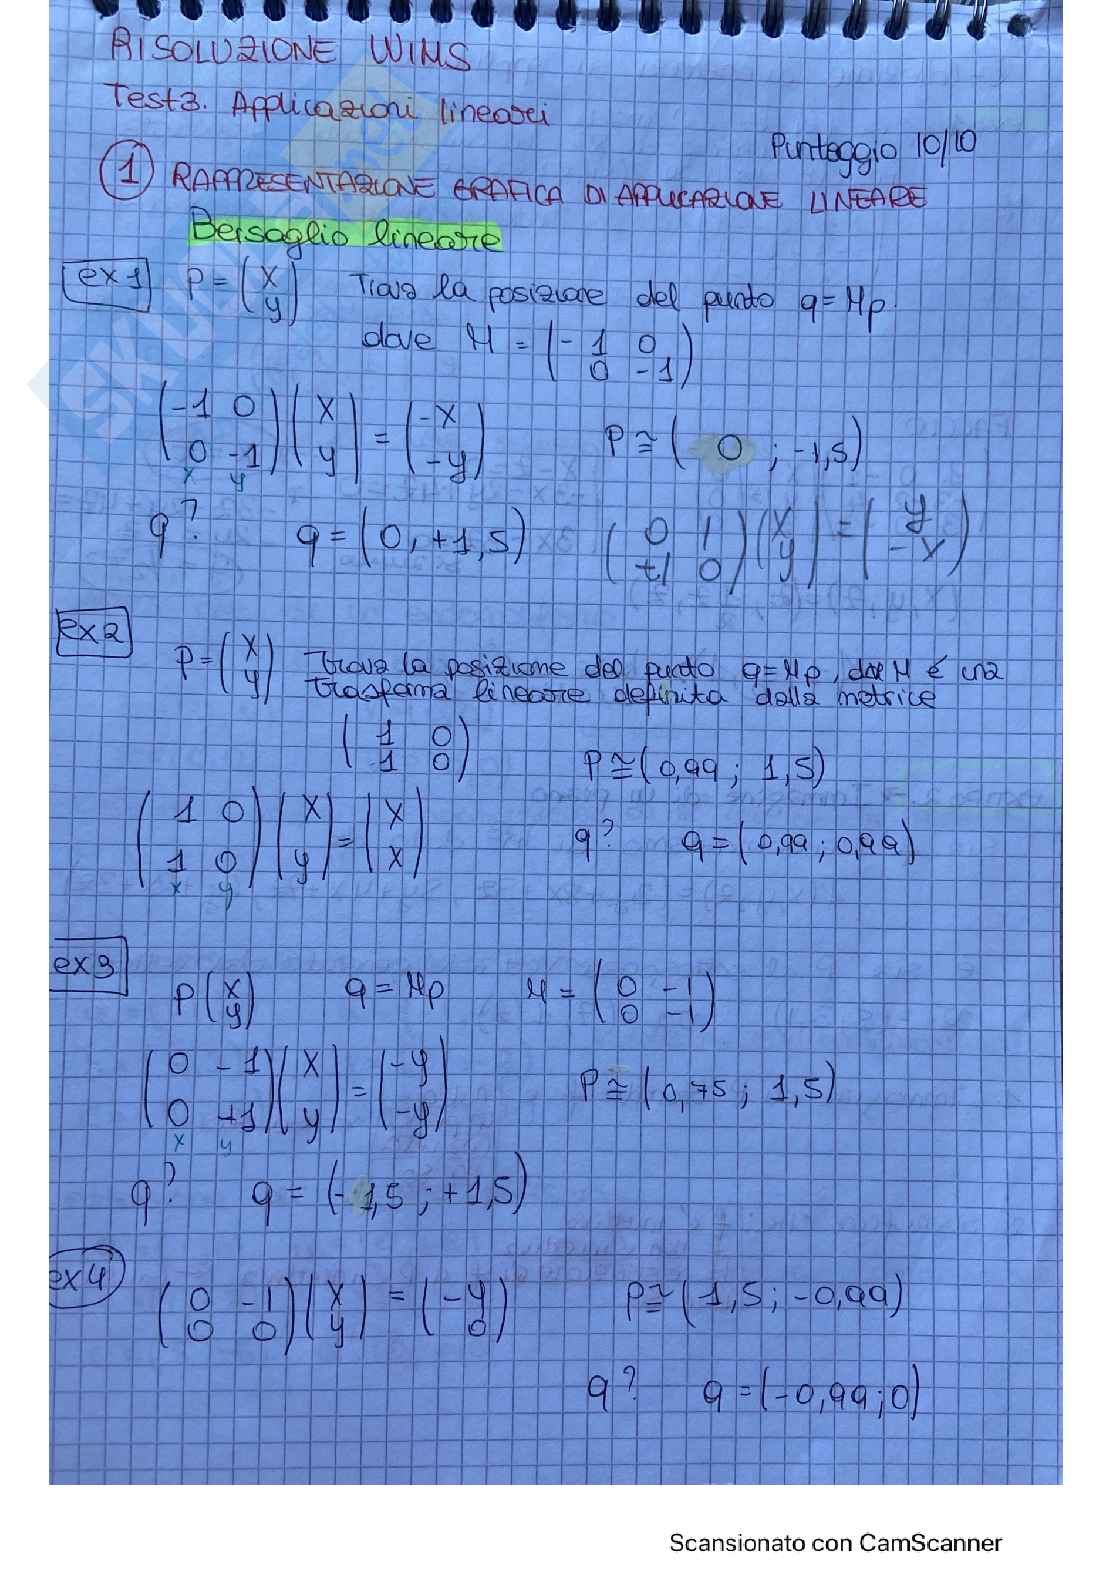 RISOLUZIONE WIMS
Test3. Applicazioni lineari
Punteggio 10/10
1 RAPPRESENTAZIONE GRAFICA DI APPLICAZIONE LINEARE
Bersaglio lineare
ex1 P = (x y) Trova la posizione del punto q = Mp.
dove M = (-1 0 0 -1)
(-1 0 0 -1)(x y) = (-x -y) P ≅ (0 ; -1,5)
x y
q? q = (0, +1,5) (0 1 +1 0)(x y) = (y -x)
ex2
P = (x y) Trova la posizione del punto q = Mp, dove M é una
trasforma lineare definita dalla metrice
(1 0 1 0)
P ≅ (0,99 ; 1,5)
(1 0 1 0)(x y) = (x x)
x y
q? q = (0,99 ; 0,99)
ex3
P (x y) q = Mp M = (0 -1 0 -1)
(0 -1 0 +1)(x y) = (-y -y) P ≅ (0,75 ; 1,5)
x y
q? q = (-1,5 ; +1,5)
ex4
(0 -1 0 0)(x y) = (-y 0) P ≅ (1,5 ; -0,99)
q? q = (-0,99 ; 0)
Scansionato con CamScanner